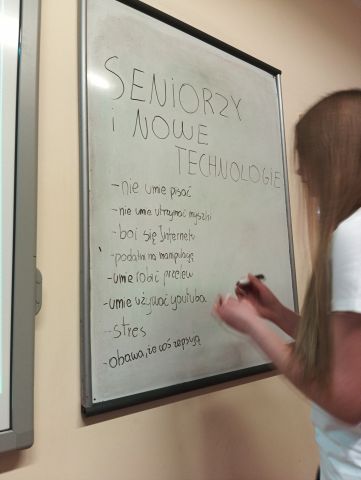 SENIORZY
i NOWE
TECHNOLOGIE
-nie umie pisać
-nie umie utrzymać myszki
-boi się Internetu
-podatni na manipulację
-umie robić przelew
-umie używać youtuba
-stres
-obawa, że coś zepsują